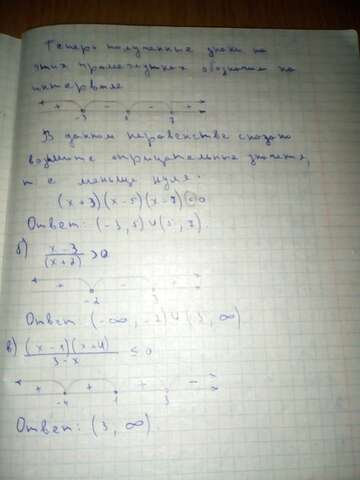 Теперь полученные знаки на
этих промежутках обозначим на
интервале
+ - - +
-3 5 7
В данном неравенстве сказано
возьмите отрицательные значения,
т. е меньше нуля.
(x+3)(x-5)(x-7)<0
Ответ: (-3, 5)U(5, 7).
б) x-3
(x+2) >0
+ - +
-2 3
Ответ: (-∞, -2)U(3, ∞)
в) (x-1)(x+4)
3-x ≤ 0
+ + + -
-4 1 3
Ответ: (3, ∞).